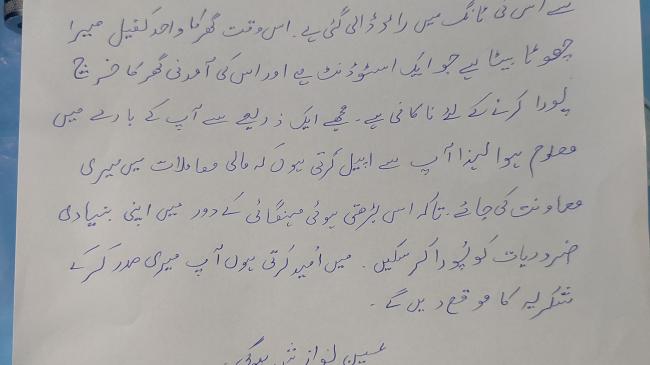 سے اس کی ٹانگ میں راڈ ڈالی گئی ہے۔ اس وقت گھر کا واحد کفیل میرا
چھوٹا بیٹا ہے جو ایک اسٹوڈنٹ ہے اور اس کی آمدنی گھر کا خرچ
پورا کرنے کے لئے ناکافی ہے۔ مجھے ایک ذریعے سے آپ کے بارے میں
معلوم ہوا لہذا آپ سے اپیل کرتی ہوں کہ مالی معاملات میں میری
معاونت کی جائے۔ تاکہ اس بڑھتی ہوئی مہنگائی کے دور میں اپنی بنیادی
ضروریات کو پُورا کر سکیں۔ میں اُمید کرتی ہوں آپ میری مدد کر کے
شکریہ کا موقع دیں گے۔
عین نوازش ہوگی۔